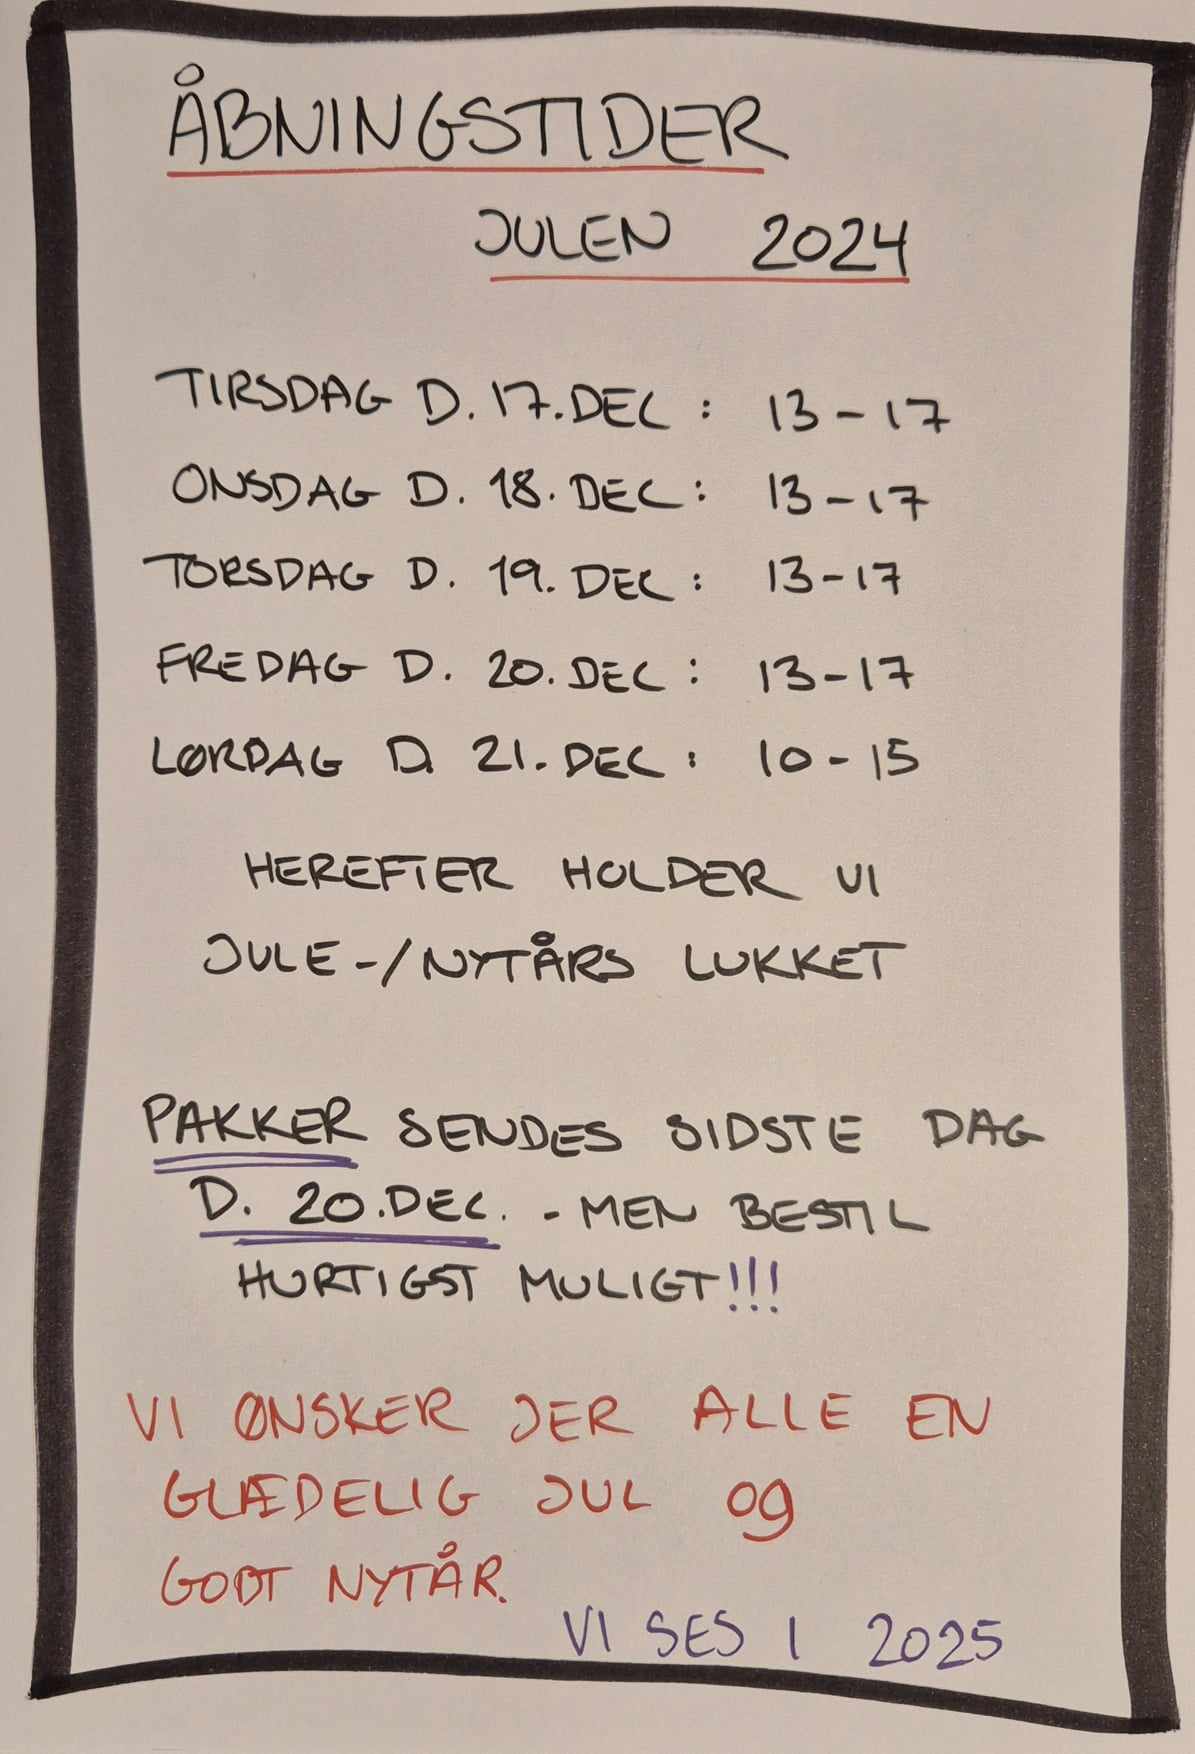 ÅBNINGSTIDER
JULEN 2024
TIRSDAG D. 17. DEC : 13 - 17
ONSDAG D. 18. DEC : 13 - 17
TORSDAG D. 19. DEC : 13 - 17
FREDAG D. 20. DEC : 13 - 17
LØRDAG D. 21. DEC : 10 - 15
HEREFTER HOLDER VI
JULE-/NYTÅRS LUKKET
PAKKER SENDES SIDSTE DAG
D. 20. DEC. - MEN BESTIL
HURTIGST MULIGT!!!
VI ØNSKER JER ALLE EN
GLÆDELIG JUL og
GODT NYTÅR.
VI SES I 2025